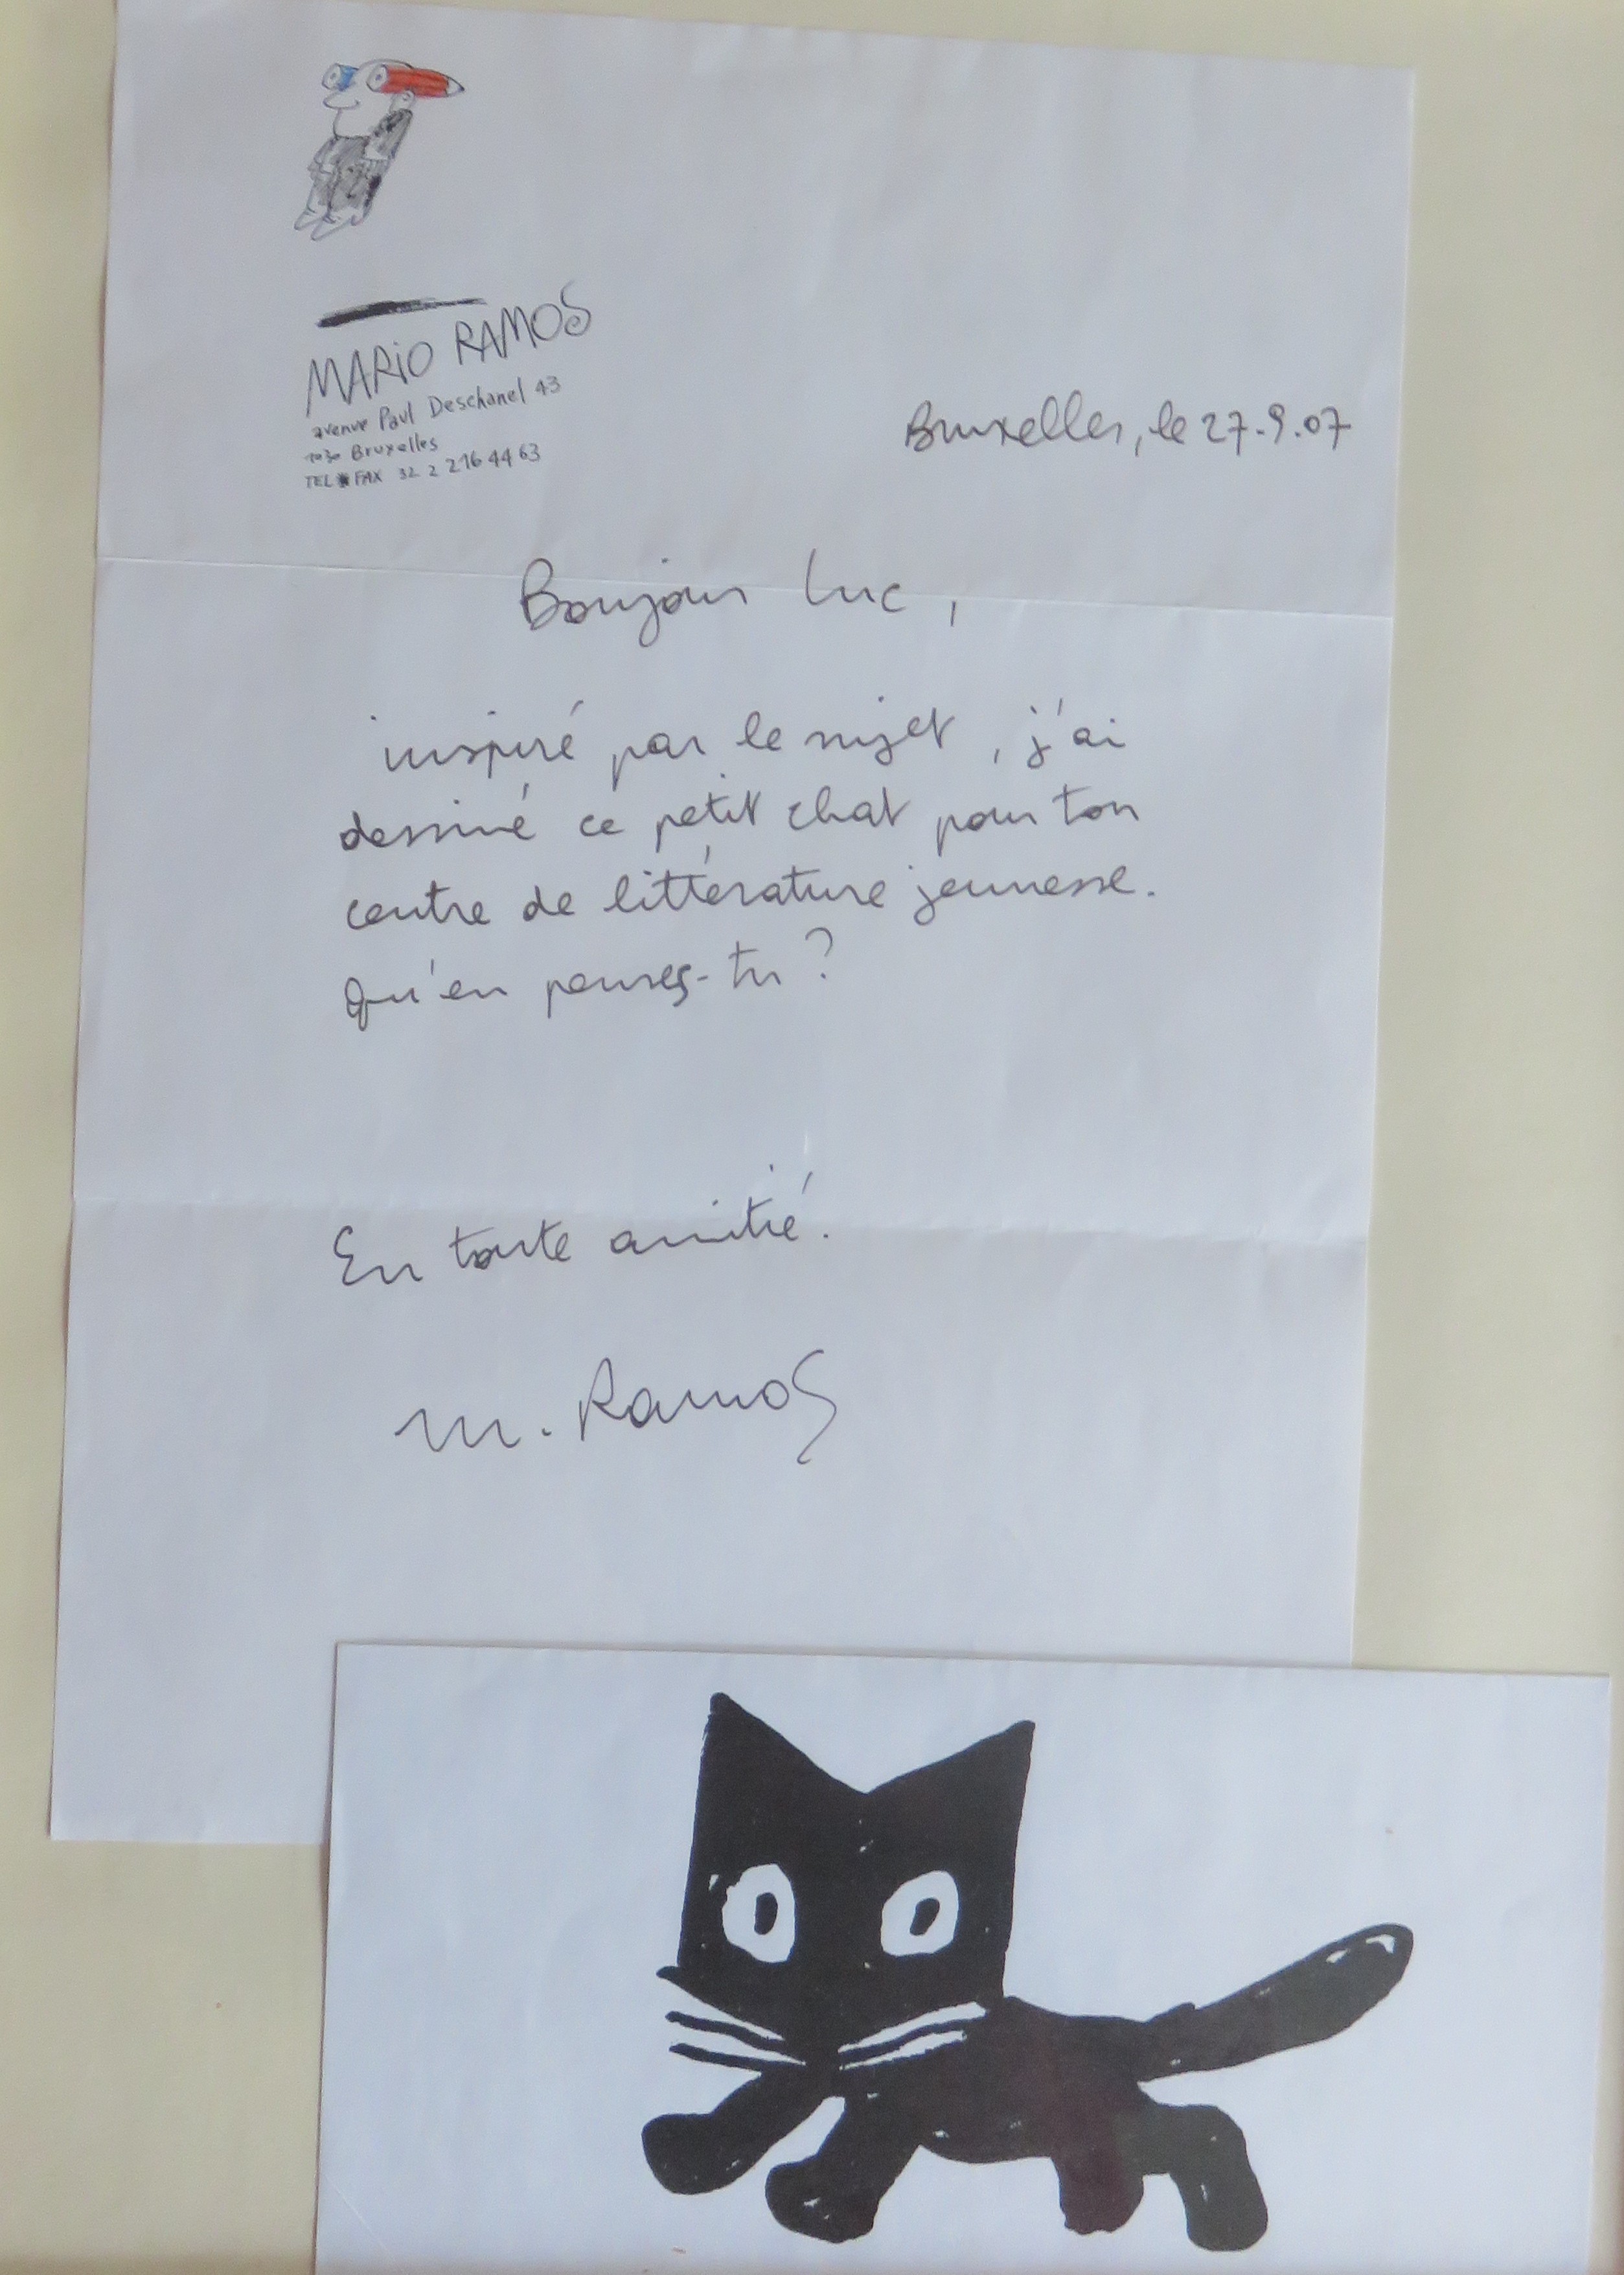 MARIO RAMOS
avenue Paul Deschanel 43
1030 Bruxelles
TEL * FAX 32 2 216 44 63
Bruxelles, le 27.9.07
Bonjour Luc,
inspiré par le sujet, j'ai
dessiné ce petit chat pour ton
centre de littérature jeunesse.
Qu'en penses-tu ?
En toute amitié.
M. Ramos